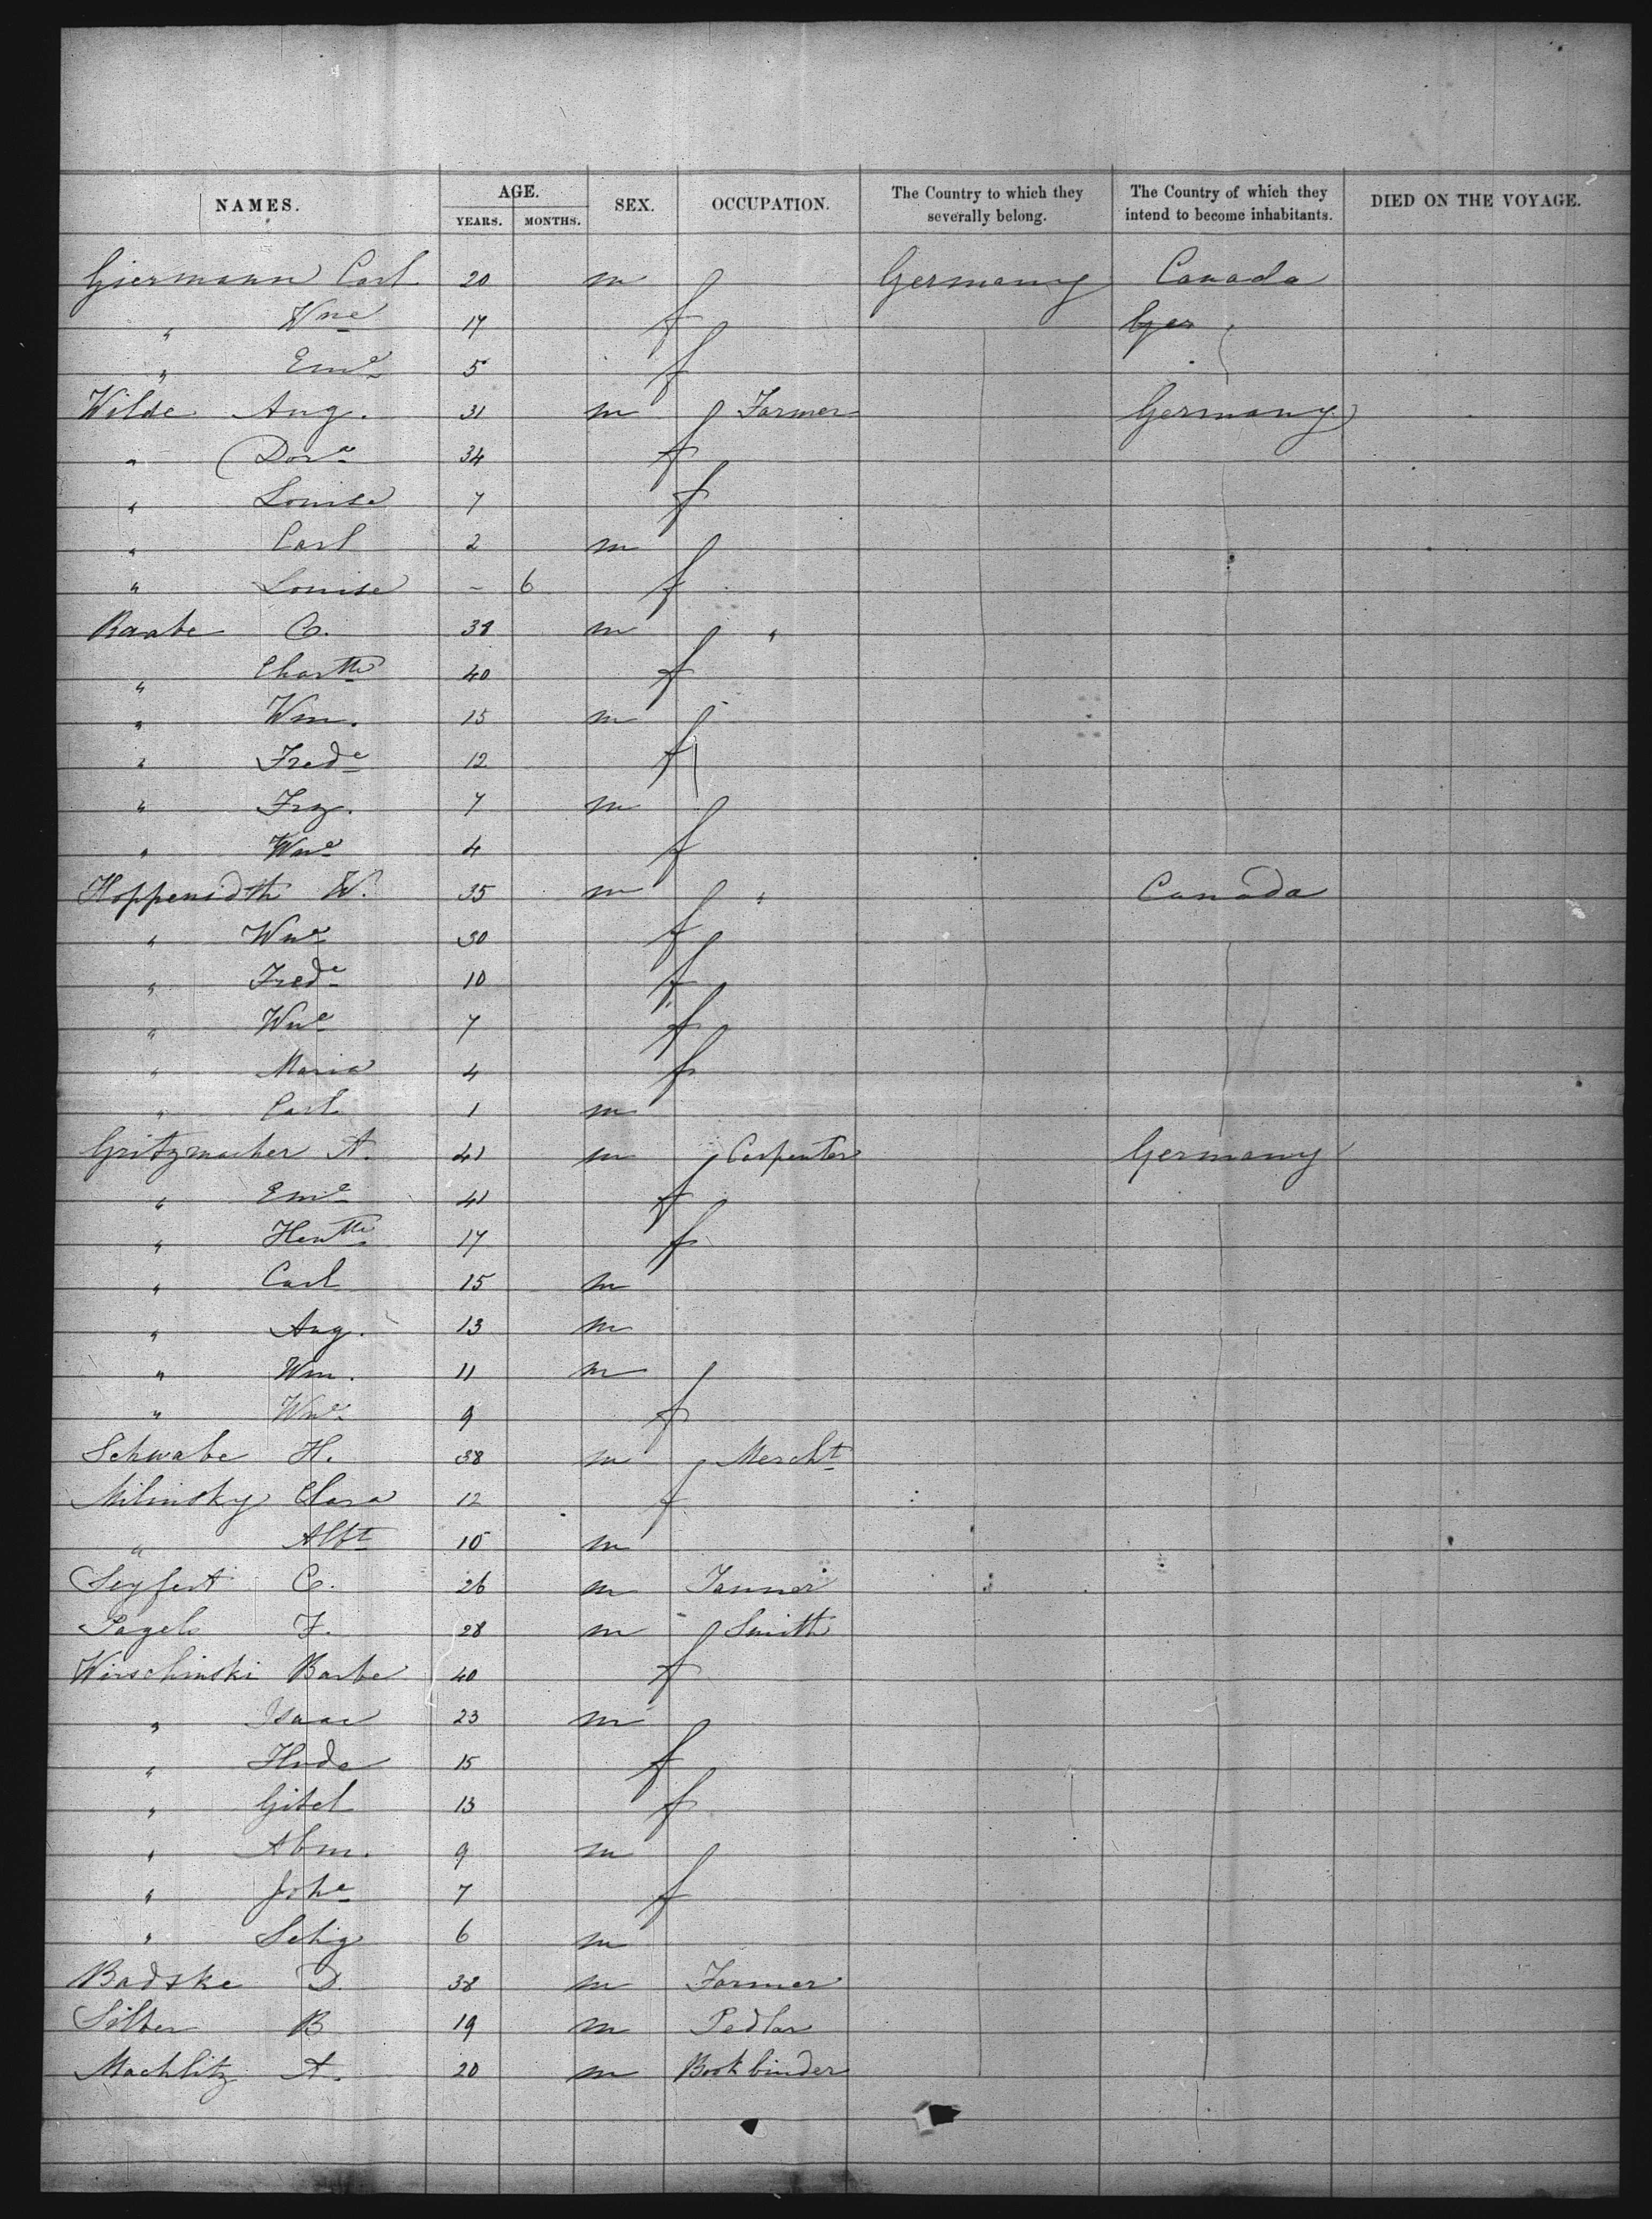 NAMES. AGE. SEX. OCCUPATION. The Country to which they severally belong. The Country of which they intend to become inhabitants. DIED ON THE VOYAGE.
YEARS. MONTHS.
Giermann Carl 20 m Germany Canada
" Wne 17 f Ger
" Eme 5 f
Wilde Aug. 31 m Farmer Germany
" Dore 34 f
" Louise 7 f
" Carl 2 m
" Louise - 6 f
Raabe C. 38 m "
" Chartte 40 f
" Wm. 15 m
" Frede 12 f
" Frz. 7 m
" Wne 4 f
Hoppensidth W. 35 m " Canada
" Wne 30 f
" Frede 10 f
" Wne 7 f
" Maria 4 f
" Carl 1 m
Gritzmacher A. 41 m Carpenter Germany
" Eme 41 f
" Hentte 17 f
" Carl 15 m
" Aug. 13 m
" Wm. 11 m
" Wne 9 f
Schwabe H. 38 m Mercht
Milinsky Clara 12 f
" Albt 10 m
Seyfert C. 26 m Tanner
Pagels F. 28 m Smith
Wirschinski Barbe 40 f
" Isaac 23 m
" Hode 15 f
" Gitel 13 f
" Abm. 9 m
" Johe 7 f
" Selig 6 m
Badske D. 38 m Farmer
Silber B 19 m Pedlar
Machlitz A. 20 m Bookbinder